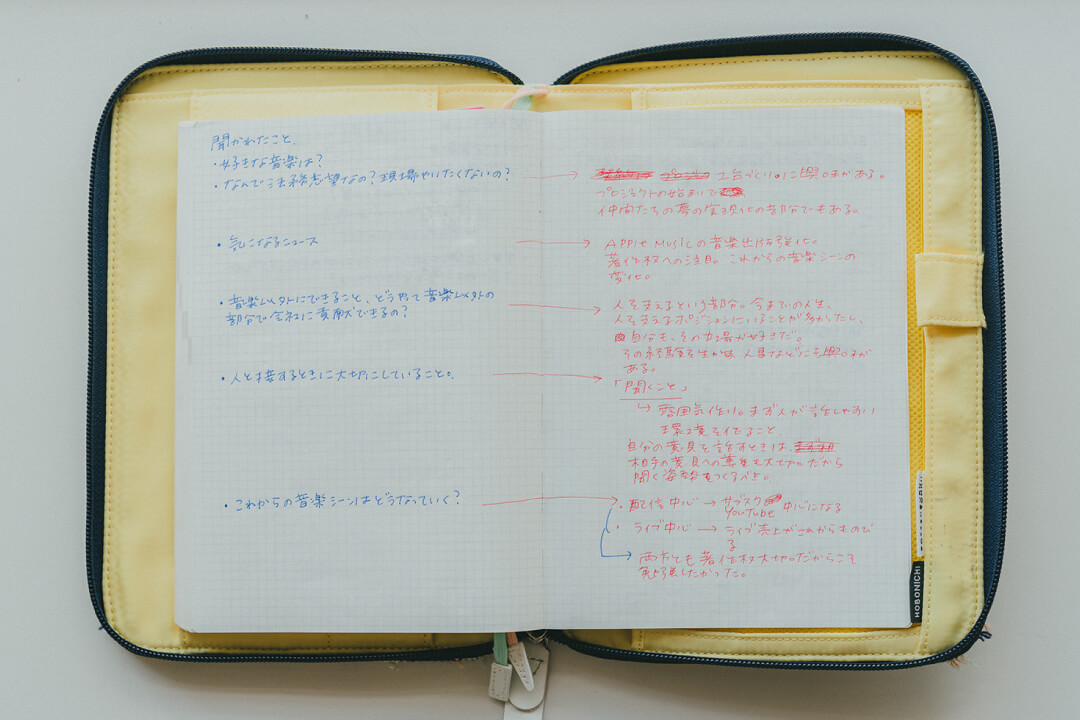 聞かれたこと、
・好きな音楽は？
・なんで法務志望なの？現場やいたくないの？
・気になるニュース
・音楽以外にできること、どうやって音楽以外の
部分で会社に貢献できるの？
・人と接するときに大切にしていること。
・これからの音楽シーンはどうなっていく？
土台づくりに興味がある。
プロジェクトの始まりで
仲間たちの夢の実現化の部分でもある。
Apple Musicの音楽出版強化。
著作権への注目。これからの音楽シーンの
変化。
人を支えるという部分。今までの人生、
人を支えるポジションにいることが多かったし、
自分も、その立場が好きだ。
その経験を生かせ 人事などにも興味が
ある。
「聞くこと」
↳ 雰囲気作り。まず人が話しやすい
環境を作ること
自分の意見を話すときは、
相手の意見への尊重も大切だから
聞く姿勢をつくるべき。
・配信中心 → サブスク
YouTube 中心になる
・ライブ中心 → ライブ売上がこれからものび
る
→ 両方とも著作権大切だからこそ
勉強したかった。
HOBONICHI